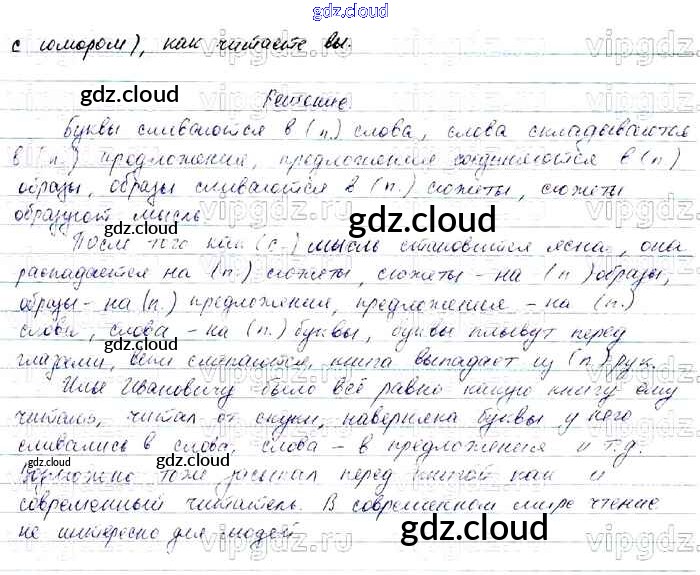 gdz.cloud
с юмором), как читаете вы.
Решение
Буквы сливаются в (п.) слова, слова складываются
в (п.) предложения, предложения соединяются в (п)
образы, образы сливаются в (п.) сюжеты, сюжеты
образуют мысль.
После того как (с.) мысль становится ясна, она
распадается на (п.) сюжеты, сюжеты - на (п) образы,
образы - на (п.) предложения, предложение - на (п.)
слова, слова - на (п.) буквы, буквы плывут перед
глазами, веки смежаются, книга выпадает из (п) рук.
Илье Ивановичу было всё равно какую книгу ему
читать, читал от скуки, наверняка буквы у него
сливались в слова, слова - в предложения и т.д.
Возможно тоже засыпал перед книгой как и
современный читатель. В современном мире чтение
не интересно для людей